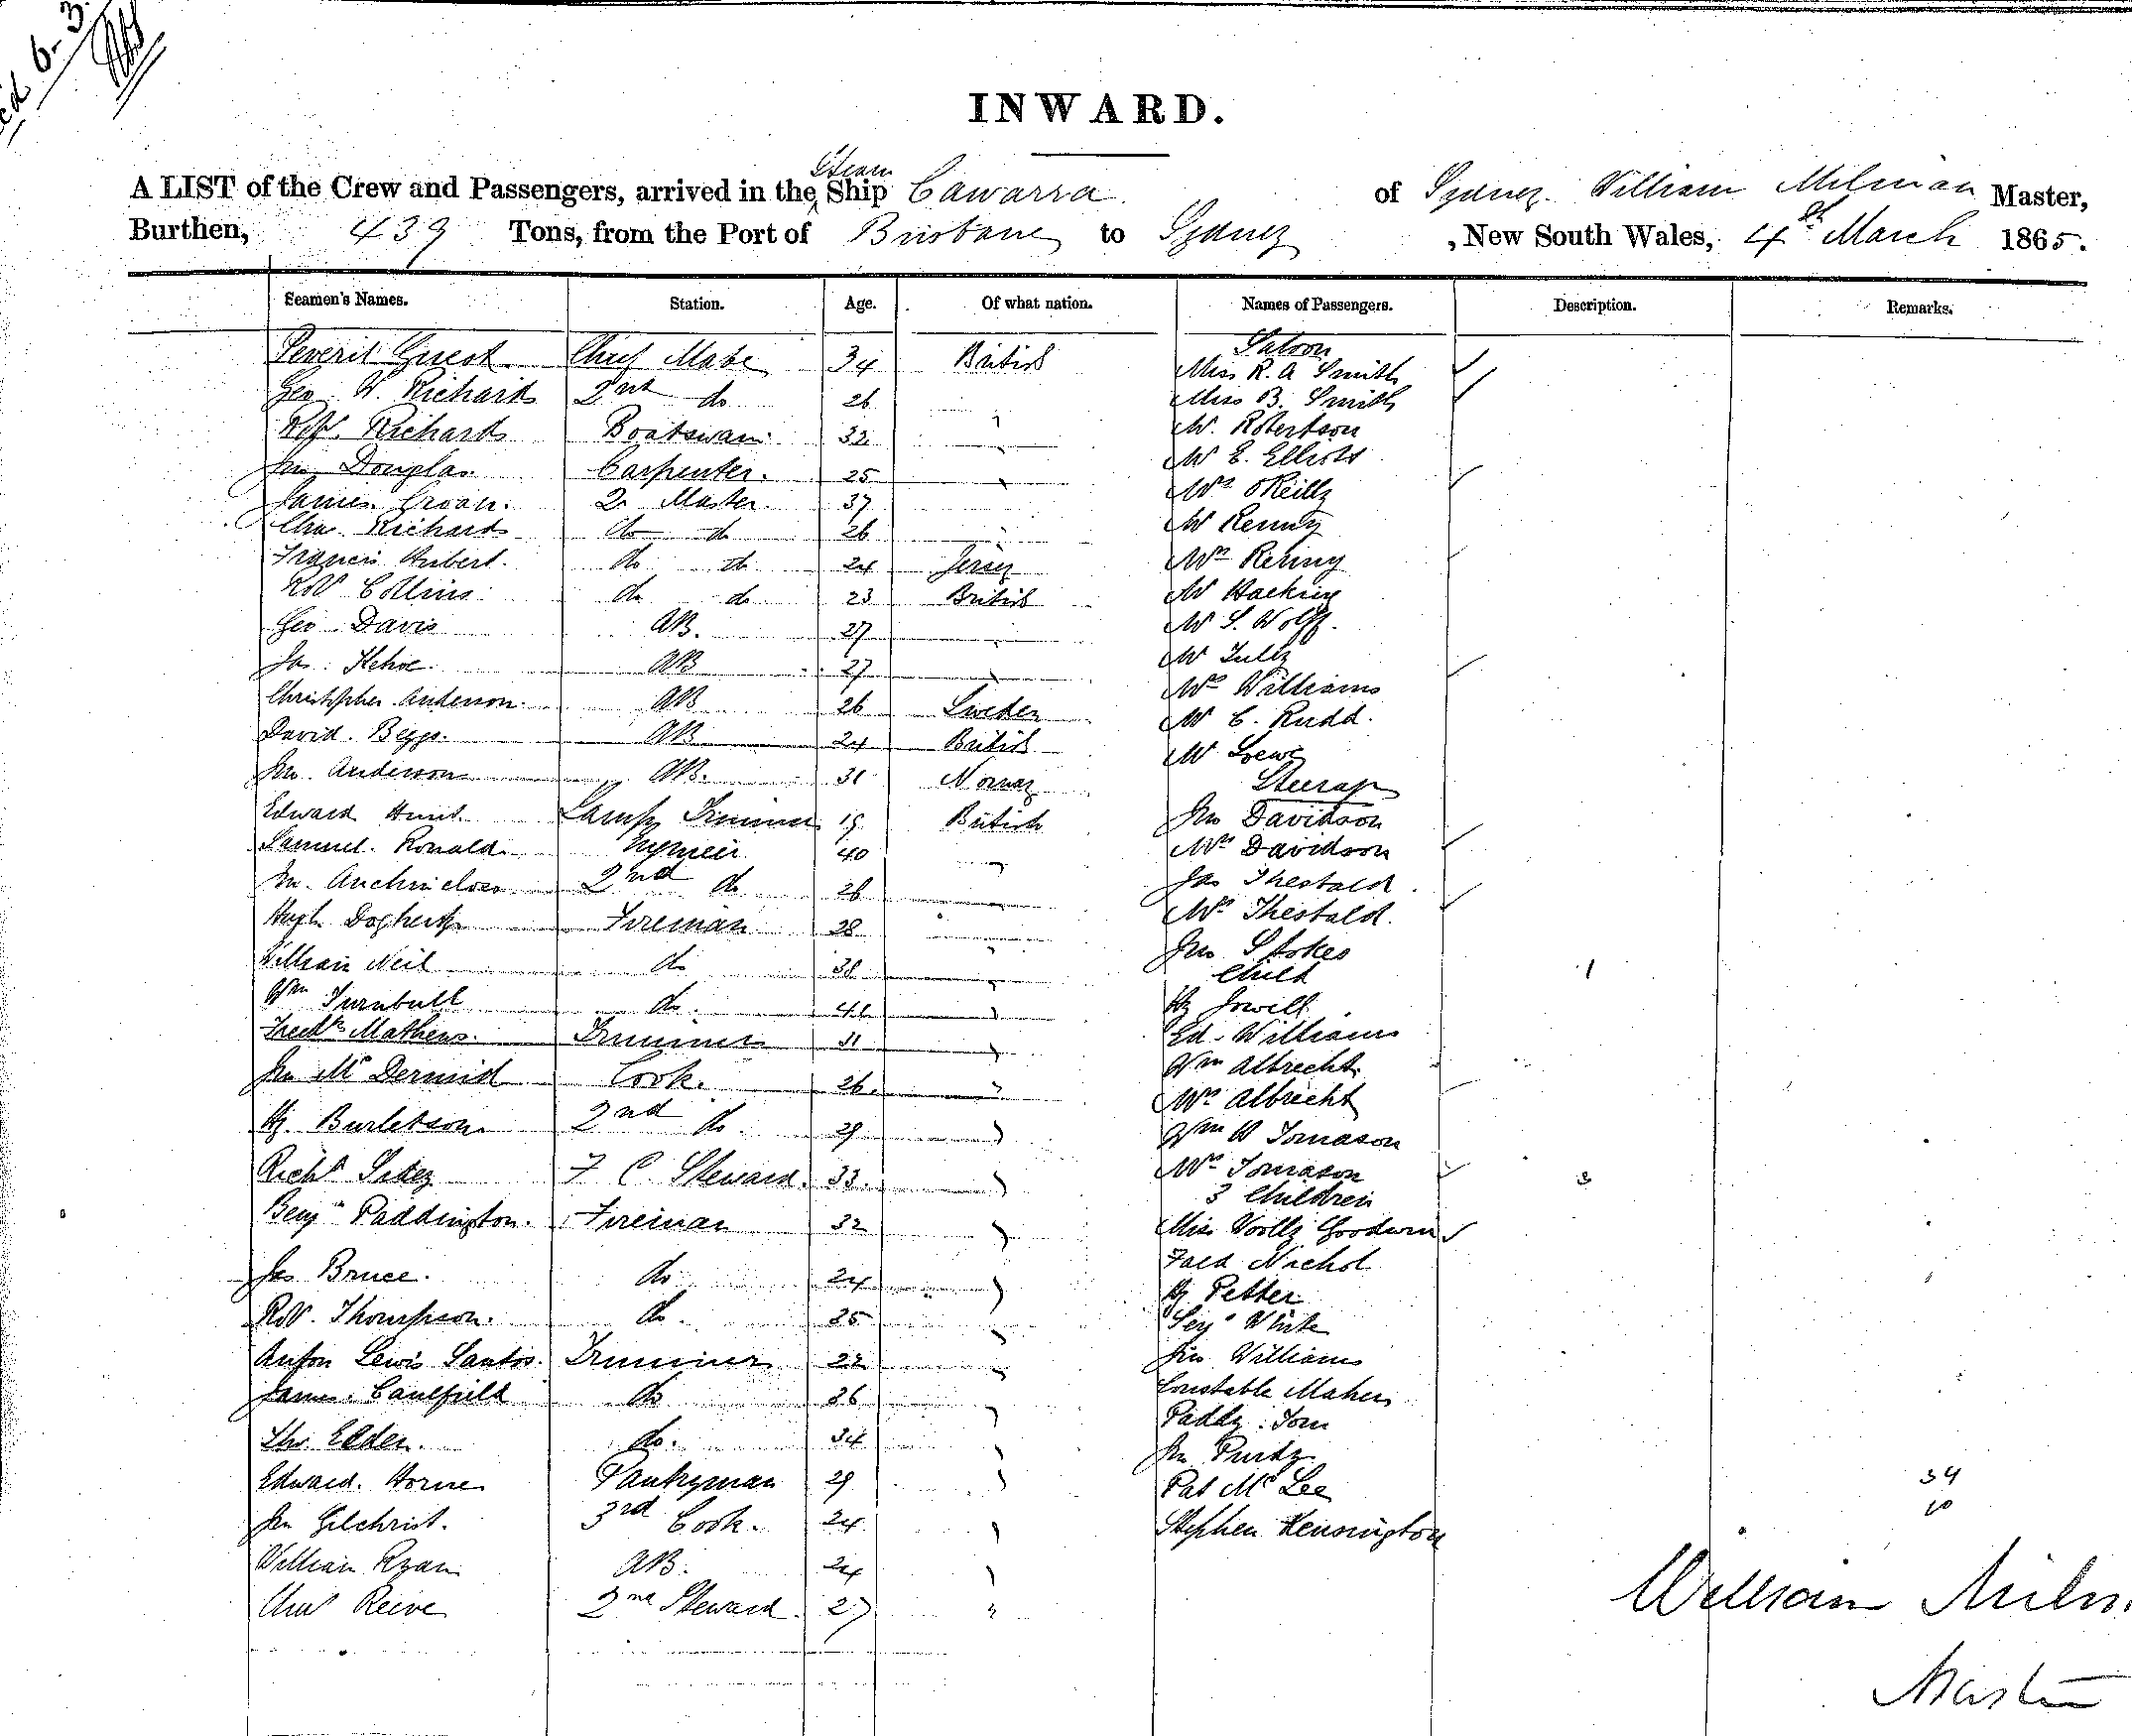 6-3
INWARD.
Steam
A LIST of the Crew and Passengers, arrived in the Ship Cawarra of Sydney William Milman Master,
Burthen, 439 Tons, from the Port of Brisbane to Sydney, New South Wales, 4th March 1865.
Seamen's Names. Station. Age. Of what nation. Names of Passengers. Description. Remarks.
Saloon
Peveril Guest Chief Mate 34 British Miss R. A Smith
Geo. H. Richards 2nd do 26 " Miss B. Smith
Richards Boatswain 32 " Mr Robertson
Jno Douglas Carpenter. 25 " Mr E. Elliott
James 2r Master. 37 " Mrs O'Reilly
Chas Richards do do 26 " Mr Renny
Francis Hubert. do do 24 Jersey Mrs Renny
Robt Collins do do 23 British Mr Hacking
Geo Davis AB. 27 " Mr S. Wolff.
Jas. Kehoe. AB 27 " Mr Tully
Christopher Anderson. AB 26 Sweden Mrs Williams
David. Beggs. AB 24 British Mr C. Rudd.
Jno. Anderson AB. 31 Norway Mr Loewe
Steerage
Edward Hunt. Lamp Trimmer 19 British Jno Davidson
Samuel. Ronald. Engineer 40 " Mrs Davidson
Jno. 2nd do 26 " Jas Thestald.
Hugh Dogherty Fireman 28 " Mrs Thestald.
William Neil do 38 " Jno Stokes
Child 1
Wm Turnbull do. " Hy Jowell
Fredk Mathews. Trimmer 31 " Ed. Williams
Jno McDermid Cook. 26. " Wm Albrecht.
Mrs Albrecht
Hy. Burletson 2nd do. 29 " Wm W Tomason
Richd F C Steward. 33. " Mrs Tomason
3 Children 3
Benjn Paddington. Fireman 32 " Miss Goodwin
Jas Bruce. do 24 " Nichol
Robt. Thompson. do. 35 " Hy Petter
White
Anton Lewis Santos. Trimmer 22 " Jno Williams
James. Caulfield do 36 " Constable Maher
Paddy. Tom
Thos Elden. do. 34 " Jno Purdy
Edward. Horne Pantryman 29 " Pat McLee 34
Jno Gilchrist. 3rd Cook. 24 " Stephen Kensington 10
William Ryan AB. 24 "
Chas Reeve 2nd Steward. 27 "
William Milm
Master